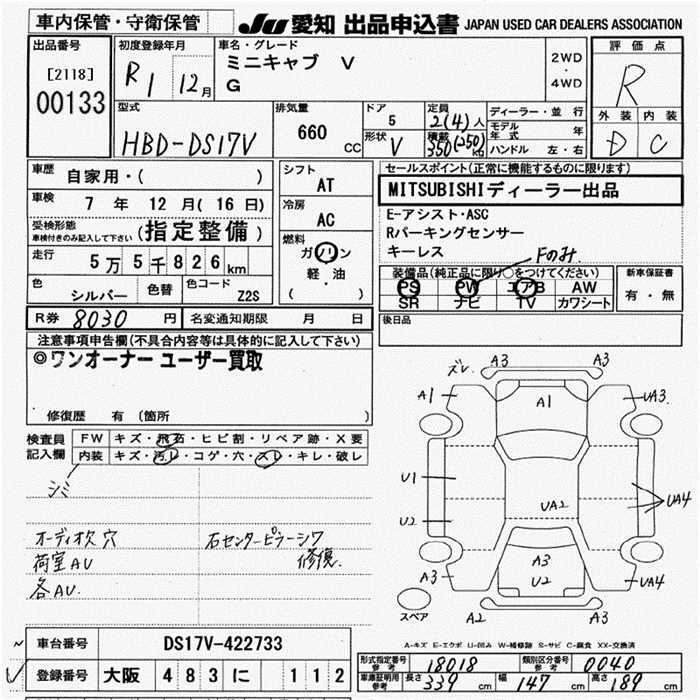 車内保管・守衛保管
JU 愛知 出品申込書 JAPAN USED CAR DEALERS ASSOCIATION
出品番号
[2118]
00133
初度登録年月
R1 12月
車名・グレード
ミニキャブ V
G
2WD
・
4WD
評価点
R
外装 内装
D C
型式
HBD-DS17V
排気量
660 CC
ドア
5
形状
V
定員
2(4)人
積載
350(250)kg
ディーラー・並行
モデル年式 年
ハンドル 左・右
車歴 自家用・( )
車検 7 年 12 月(16 日)
受検形態
車検付きのみ記入して下さい
(指定整備)
走行 5万5千826km
色 シルバー
色替
色コード Z2S
R券 8030 円 名変通知期限 月 日
シフト
AT
冷房
AC
燃料
ガソリン
軽・油
( )
セールスポイント(正常に機能するものに限ります)
MITSUBISHIディーラー出品
E-アシスト・ASC
Rパーキングセンサー
キーレス
Fのみ
装備品(純正品に限り○をつけてください)
PS PW エアB AW
SR ナビ TV カワシート
新車保証書
有・無
後日品
注意事項申告欄(不具合内容等は具体的に記入して下さい)
◎ワンオーナー ユーザー買取
修復歴 有 (箇所 )
検査員
記入欄
FW キズ・飛石・ヒビ割・リペア跡・X要
内装 キズ・汚レ・コゲ・穴・スレ・キレ・破レ
シミ
オーディオ欠 穴
荷室AU
各AU.
右センターピラーシワ
修復.
ズレ. A3 A3
A1 A1 UA3
U1
U2
UA2 UA4
A3
U2
A3 UA4
A2 A3
スペア
A-キズ E-エクボ U-凹み W-補修跡 S-サビ C-腐食 XX-交換済
車台番号 DS17V-422733
登録番号 大阪 483 に 112
形式指定番号
参考
18018
類別区分番号
参考
0040
車庫証明用
参考
長さ 339 cm 幅 147 cm 高さ 189 cm